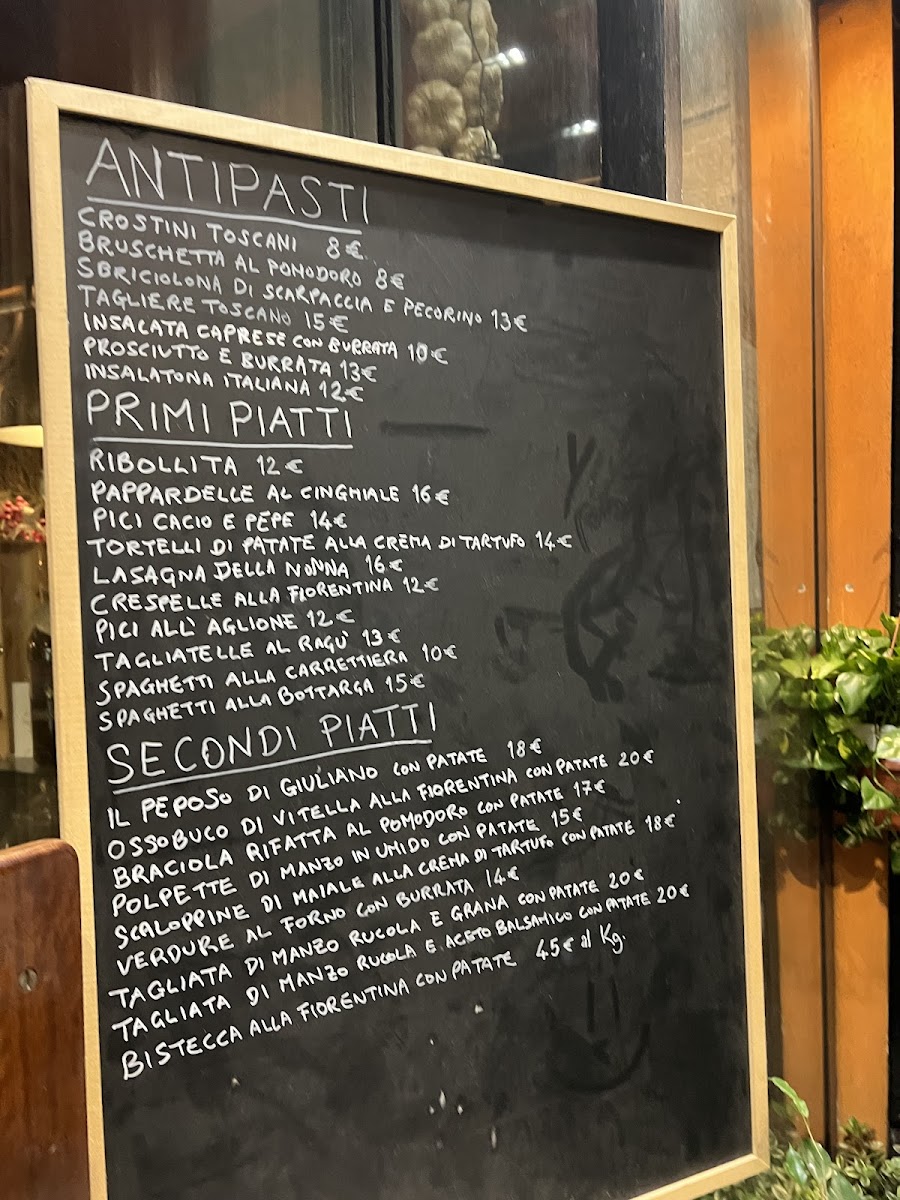 ANTIPASTI
CROSTINI TOSCANI 8€
BRUSCHETTA AL POMODORO 8€
SBRICIOLONA DI SCARPACCIA E PECORINO 13€
TAGLIERE TOSCANO 15€
INSALATA CAPRESE CON BURRATA 10€
PROSCIUTTO E BURRATA 13€
INSALATONA ITALIANA 12€
PRIMI PIATTI
RIBOLLITA 12€
PAPPARDELLE AL CINGHIALE 16€
PICI CACIO E PEPE 14€
TORTELLI DI PATATE ALLA CREMA DI TARTUFO 14€
LASAGNA DELLA NONNA 16€
CRESPELLE ALLA FIORENTINA 12€
PICI ALL'AGLIONE 12€
TAGLIATELLE AL RAGÙ 13€
SPAGHETTI ALLA CARRETTIERA 10€
SPAGHETTI ALLA BOTTARGA 15€
SECONDI PIATTI
IL PEPOSO DI GIULIANO CON PATATE 18€
OSSOBUCO DI VITELLA ALLA FIORENTINA CON PATATE 20€
BRACIOLA RIFATTA AL POMODORO CON PATATE 17€
POLPETTE DI MANZO IN UMIDO CON PATATE 15€
SCALOPPINE DI MAIALE ALLA CREMA DI TARTUFO CON PATATE 18€
VERDURE AL FORNO CON BURRATA 14€
TAGLIATA DI MANZO RUCOLA E GRANA CON PATATE 20€
TAGLIATA DI MANZO RUCOLA E ACETO BALSAMICO CON PATATE 20€
BISTECCA ALLA FIORENTINA CON PATATE 45€ al Kg.